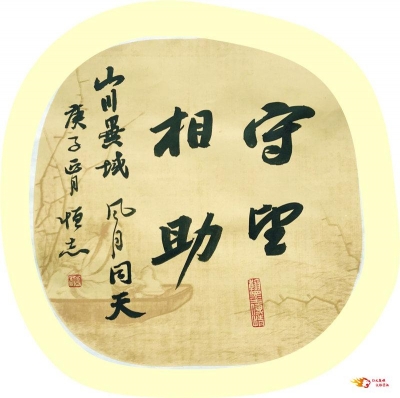 守望
相助
山川異域
風月同天
庚子正月 恒志